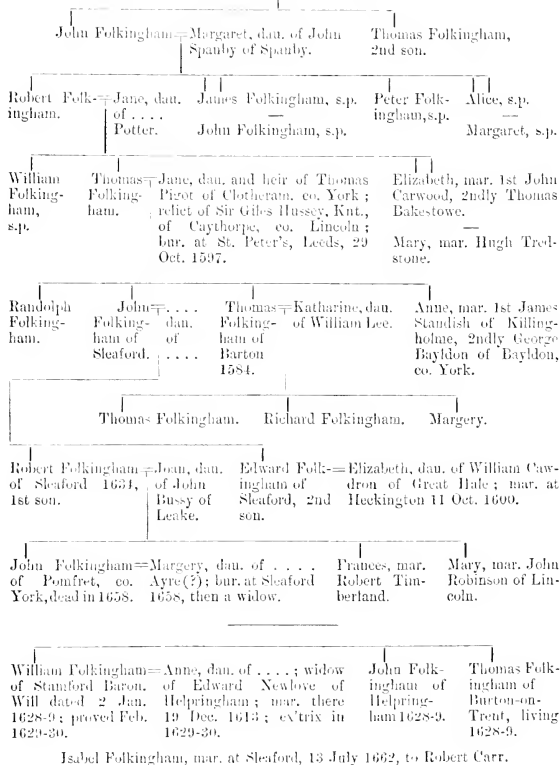 John Folkingham=Margaret, dau. of John
Spanby of Spanby.
Thomas Folkingham,
2nd son.
Robert Folk-
ingham.
=Jane, dau.
of . . . .
Potter.
James Folkingham, s.p.
—
John Folkingham, s.p.
Peter Folk-
ingham, s.p.
Alice, s.p.
—
Margaret, s.p.
William
Folking-
ham,
s.p.
Thomas
Folking-
ham.
=Jane, dau. and heir of Thomas
Pigot of Clotheram, co. York;
relict of Sir Giles Hussey, Knt.,
of Caythorpe, co. Lincoln;
bur. at St. Peter's, Leeds, 29
Oct. 1597.
Elizabeth, mar. 1st John
Carwood, 2ndly Thomas
Bakestowe.
—
Mary, mar. Hugh Tred-
stone.
Randolph
Folking-
ham.
John
Folking-
ham of
Sleaford.
= . . . .
dau.
of
. . . .
Thomas
Folking-
ham of
Barton
1584.
=Katharine, dau.
of William Lee.
Anne, mar. 1st James
Standish of Killing-
holme, 2ndly George
Bayldon of Bayldon,
co. York.
Thomas Folkingham.
Richard Folkingham.
Margery.
Robert Folkingham
of Sleaford 1634,
1st son.
=Joan, dau.
of John
Bussy of
Leake.
Edward Folk-
ingham of
Sleaford, 2nd
son.
=Elizabeth, dau. of William Caw-
dron of Great Hale; mar. at
Heckington 11 Oct. 1600.
John Folkingham
of Pomfret, co.
York, dead in 1658.
=Margery, dau. of . . . .
Ayre(?); bur. at Sleaford
1658, then a widow.
Frances, mar.
Robert Tim-
berland.
Mary, mar. John
Robinson of Lin-
coln.
William Folkingham
of Stamford Baron.
Will dated 2 Jan.
1628-9; proved Feb.
1629-30.
=Anne, dau. of . . . . ; widow
of Edward Newlove of
Helpringham; mar. there
19 Dec. 1613; ex'trix in
1629-30.
John Folk-
ingham of
Helpring-
ham 1628-9.
Thomas Folk-
ingham of
Burton-on-
Trent, living
1628-9.
Isabel Folkingham, mar. at Sleaford, 13 July 1662, to Robert Carr.